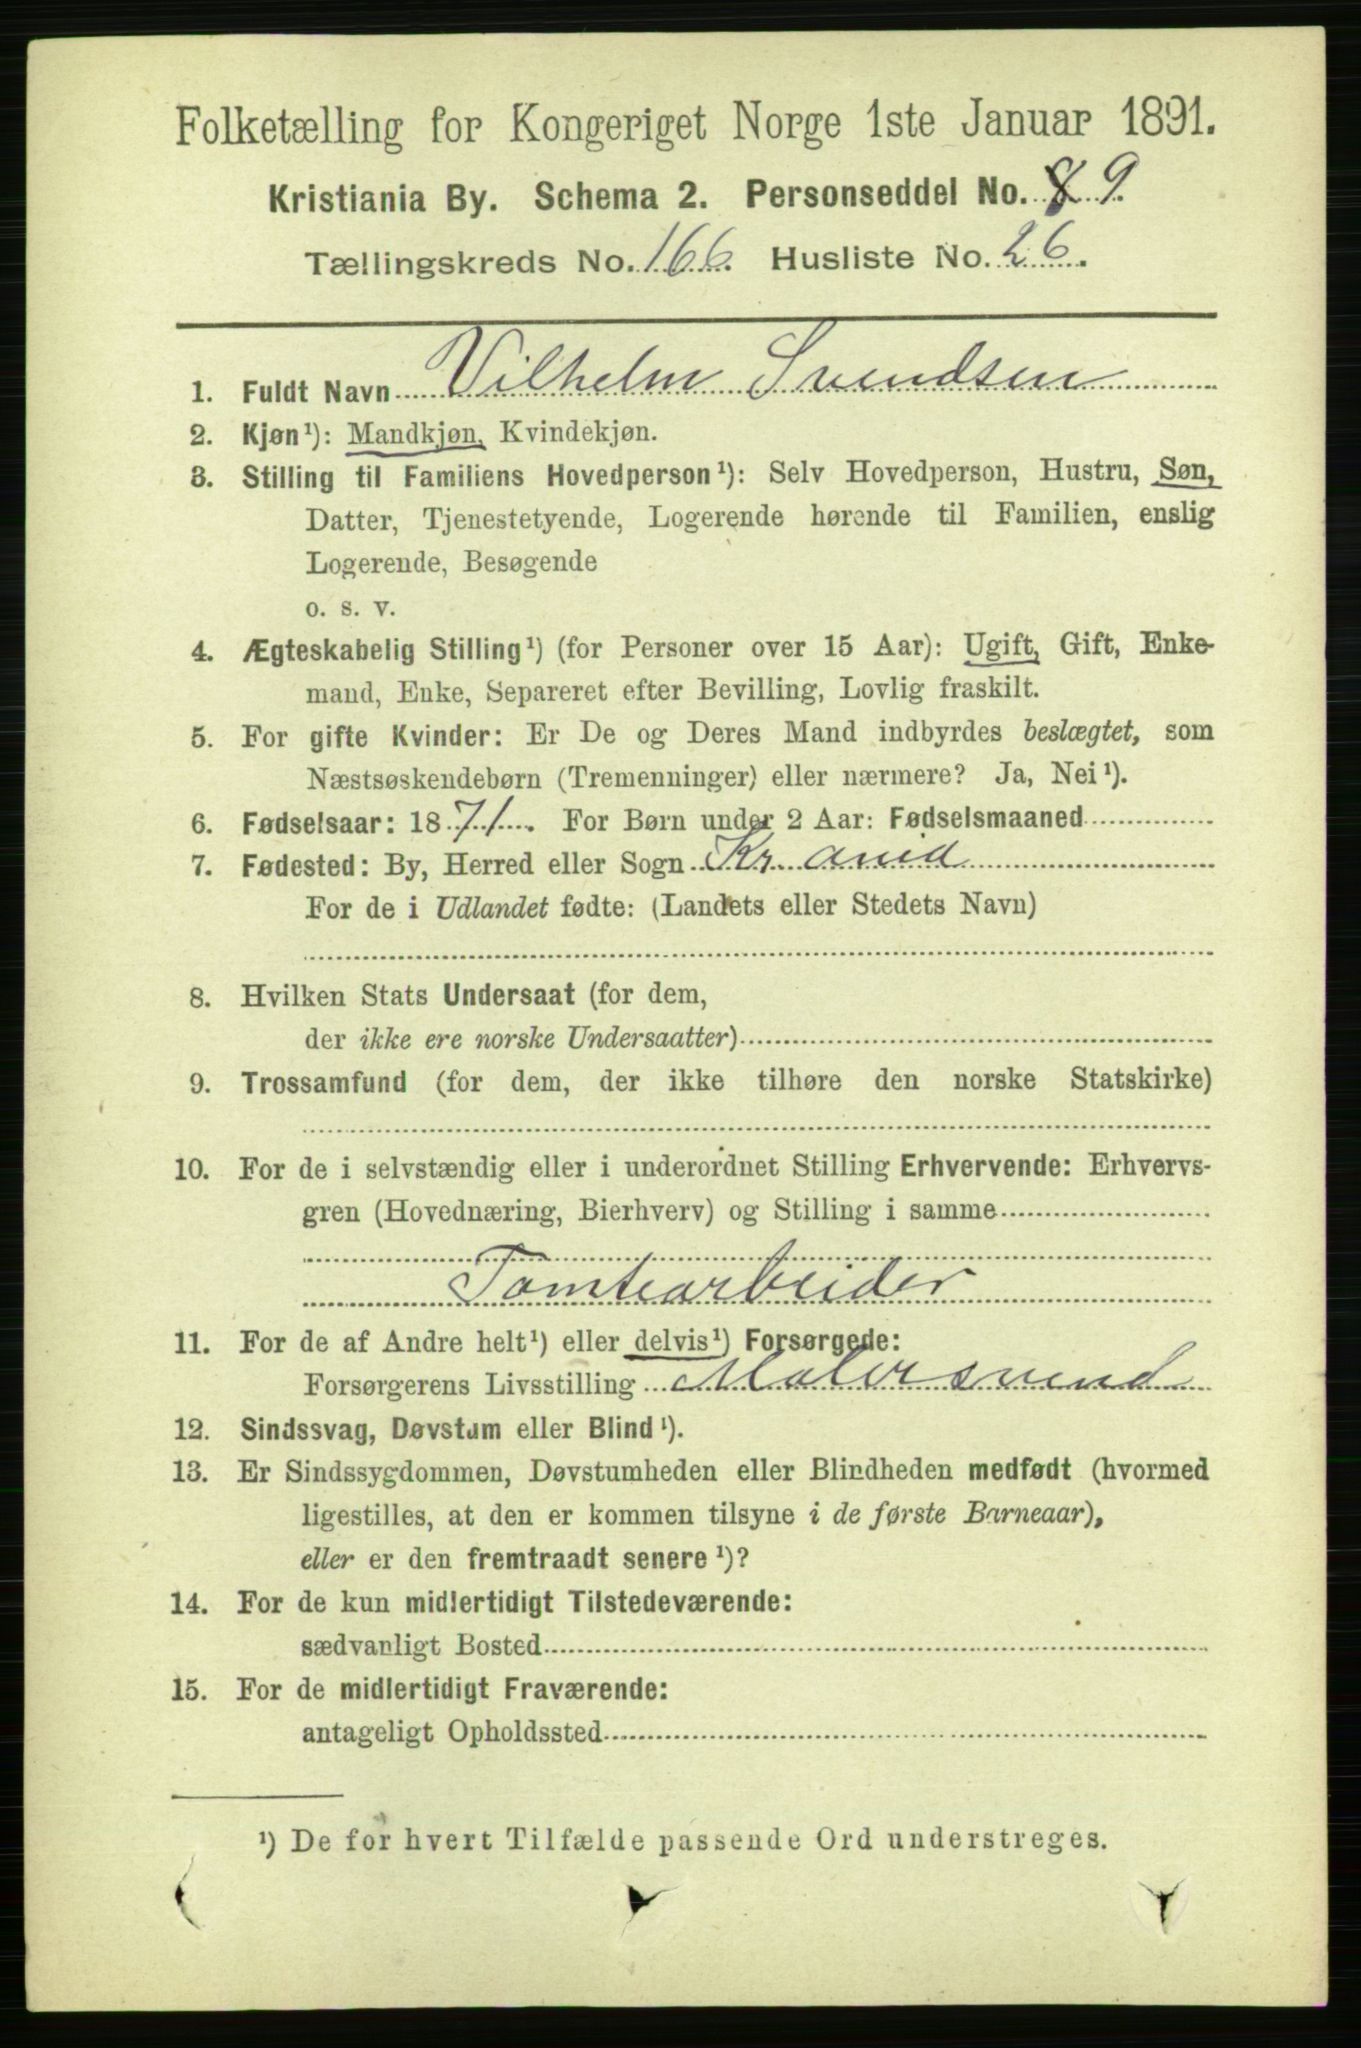 Folketælling for Kongeriget Norge 1ste Januar 1891.
Kristiania By. Schema 2. Personseddel No. 9.
Tællingskreds No. 166. Husliste No. 26.
1. Fuldt Navn Vilhelm Svendsen
2. Kjøn¹): Mandkjøn, Kvindekjøn.
3. Stilling til Familiens Hovedperson¹): Selv Hovedperson, Hustru, Søn,
Datter, Tjenestetyende, Logerende hørende til Familien, enslig
Logerende, Besøgende
o. s. v.
4. Ægteskabelig Stilling¹) (for Personer over 15 Aar): Ugift, Gift, Enke-
mand, Enke, Separeret efter Bevilling, Lovlig fraskilt.
5. For gifte Kvinder: Er De og Deres Mand indbyrdes beslægtet, som
Næstsøskendebørn (Tremenninger) eller nærmere? Ja, Nei¹).
6. Fødselsaar: 1871. For Børn under 2 Aar: Fødselsmaaned
7. Fødested: By, Herred eller Sogn Kr.ania
For de i Udlandet fødte: (Landets eller Stedets Navn)
8. Hvilken Stats Undersaat (for dem,
der ikke ere norske Undersaatter)
9. Trossamfund (for dem, der ikke tilhøre den norske Statskirke)
10. For de i selvstændig eller i underordnet Stilling Erhvervende: Erhvervs-
gren (Hovednæring, Bierhverv) og Stilling i samme
Tomtearbeider
11. For de af Andre helt¹) eller delvis¹) Forsørgede:
Forsørgerens Livsstilling Malersvend
12. Sindssvag, Døvstum eller Blind¹).
13. Er Sindssygdommen, Døvstumheden eller Blindheden medfødt (hvormed
ligestilles, at den er kommen tilsyne i de første Barneaar),
eller er den fremtraadt senere¹)?
14. For de kun midlertidigt Tilstedeværende:
sædvanligt Bosted
15. For de midlertidigt Fraværende:
antageligt Opholdssted
¹) De for hvert Tilfælde passende Ord understreges.